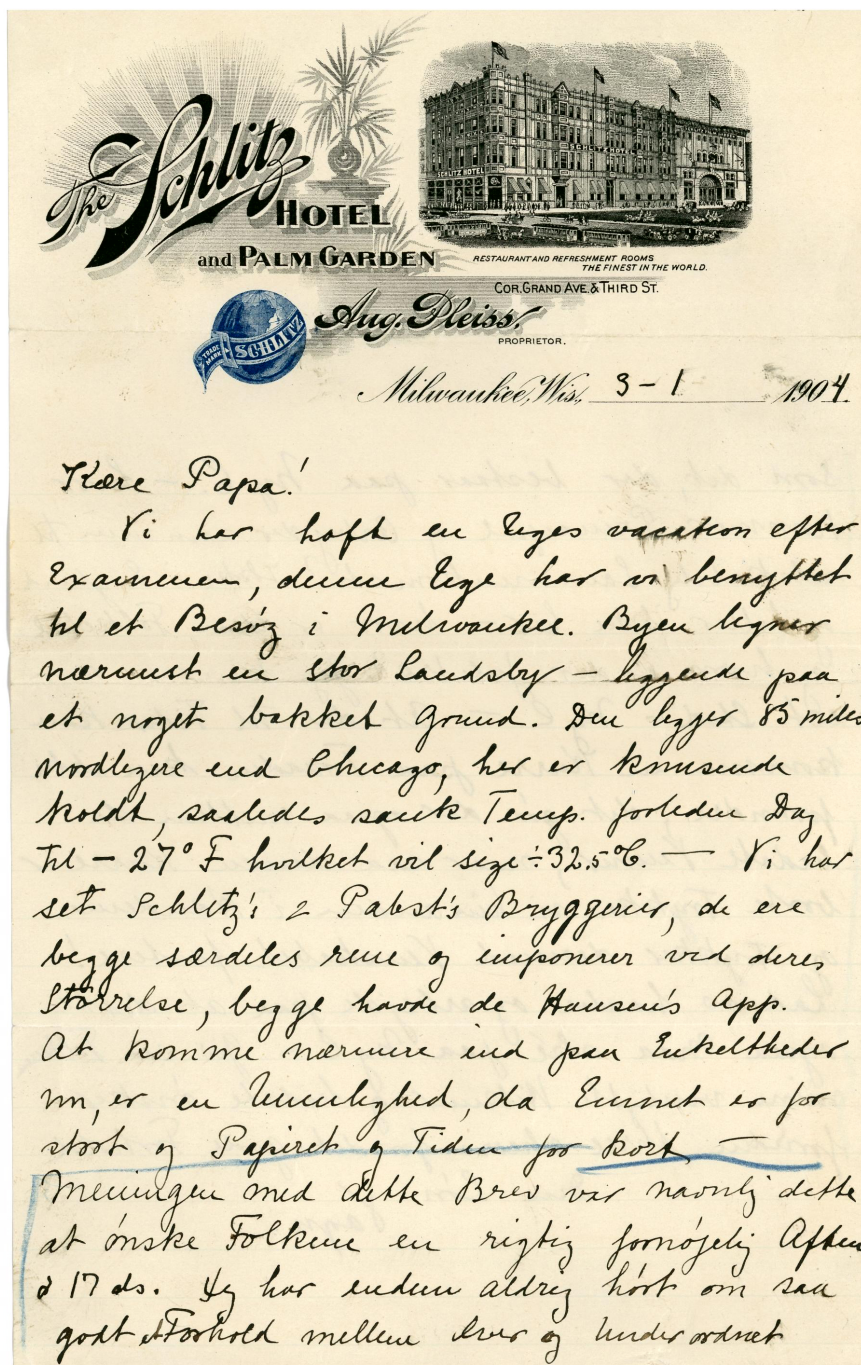 The Schlitz
HOTEL
and PALM GARDEN
SCHLITZ HOTEL
SCHLITZ HOTEL
RESTAURANT AND REFRESHMENT ROOMS
THE FINEST IN THE WORLD.
COR. GRAND AVE. & THIRD ST.
TRADE MARK SCHLITZ
Aug. Pleiss.
PROPRIETOR.
Milwaukee, Wis., 3-1 1904.
Kære Papa!
Vi har haft en Uges vacation efter
Examenen, denne Uge har vi benyttet
til et Besøg i Milwaukee. Byen ligner
nærmest en stor Landsby – liggende paa
et noget bakket Grund. Den ligger 85 miles
nordligere end Chicago, her er knusende
koldt, saaledes sank Temp. forleden Dag
til – 27° F hvilket vil sige ÷32.5°C. — Vi har
set Schlitz's & Pabst's Bryggerier, de ere
begge særdeles rene og imponerer ved deres
Størrelse, begge havde de Hansen's App.
At komme nærmere ind paa Enkeltheder
nu, er en Umulighed, da Emnet er for
stort og Papiret og Tiden for kort —
Meningen med dette Brev var navnlig dette
at ønske Folkene en rigtig fornøjelig Aften
d 17 ds. Jeg har endnu aldrig hørt om saa
godt et Forhold mellem Over og Underordnet